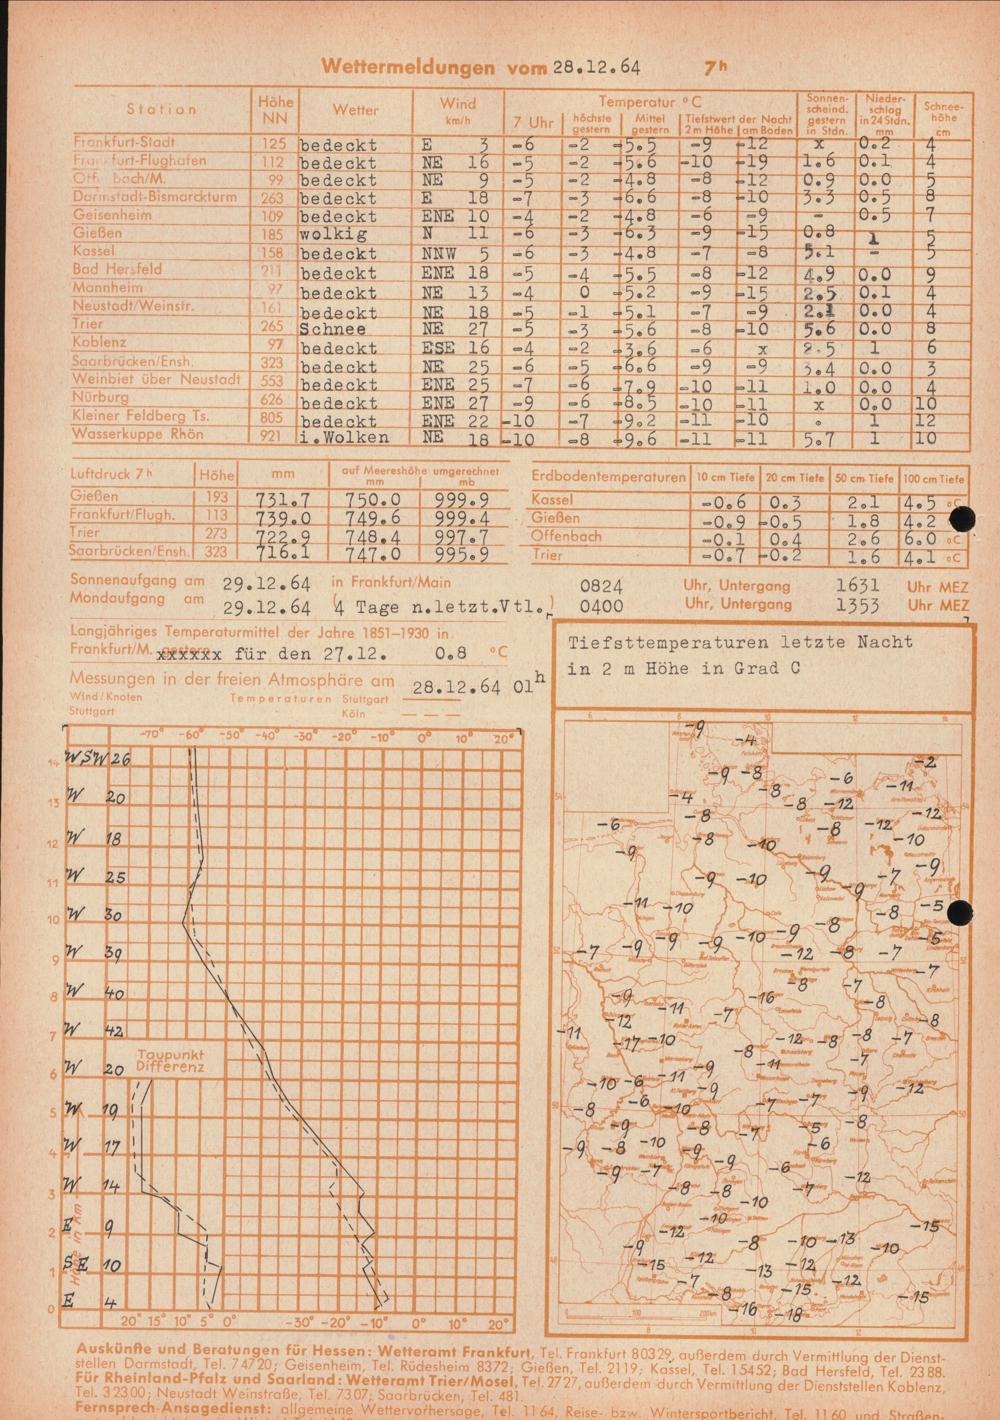 Wettermeldungen vom 28.12.64 7h
Station Höhe NN Wetter Wind km/h Temperatur °C Sonnen-scheind. gestern in Stdn. Nieder-schlag in 24 Stdn. mm Schnee-höhe cm
7 Uhr höchste gestern Mittel gestern Tiefstwert der Nacht 2 m Höhe am Boden
Frankfurt-Stadt 125 bedeckt E 3 -6 -2 -5.5 -9 -12 x 0.2 4
Frankfurt-Flughafen 112 bedeckt NE 16 -5 -2 -5.6 -10 -19 1.6 0.1 4
Offenbach/M. 99 bedeckt NE 9 -5 -2 -4.8 -8 -12 0.9 0.0 5
Darmstadt-Bismarckturm 263 bedeckt E 18 -7 -3 -6.6 -8 -10 3.3 0.5 8
Geisenheim 109 bedeckt ENE 10 -4 -2 -4.8 -6 -9 - 0.5 7
Gießen 185 wolkig N 11 -6 -3 -6.3 -9 -15 0.8 1 5
Kassel 158 bedeckt NNW 5 -6 -3 -4.8 -7 -8 5.1 - 5
Bad Hersfeld 211 bedeckt ENE 18 -5 -4 -5.5 -8 -12 4.9 0.0 9
Mannheim 97 bedeckt NE 13 -4 0 -5.2 -9 -15 2.5 0.1 4
Neustadt/Weinstr. 161 bedeckt NE 18 -5 -1 -5.1 -7 -9 2.1 0.0 4
Trier 265 Schnee NE 27 -5 -3 -5.6 -8 -10 5.6 0.0 8
Koblenz 97 bedeckt ESE 16 -4 -2 -3.6 -6 x 2.5 1 6
Saarbrücken/Ensh. 323 bedeckt NE 25 -6 -5 -6.6 -9 -9 3.4 0.0 3
Weinbiet über Neustadt 553 bedeckt ENE 25 -7 -6 -7.9 -10 -11 1.0 0.0 4
Nürburg 626 bedeckt ENE 27 -9 -6 -8.5 -10 -11 x 0.0 10
Kleiner Feldberg Ts. 805 bedeckt ENE 22 -10 -7 -9.2 -11 -10 . 1 12
Wasserkuppe Rhön 921 i.Wolken NE 18 -10 -8 -9.6 -11 -11 5.7 1 10
Luftdruck 7 h Höhe mm auf Meereshöhe umgerechnet mm mb
Gießen 193 731.7 750.0 999.9
Frankfurt/Flugh. 113 739.0 749.6 999.4
Trier 273 722.9 748.4 997.7
Saarbrücken/Ensh. 323 716.1 747.0 995.9
Erdbodentemperaturen 10 cm Tiefe 20 cm Tiefe 50 cm Tiefe 100 cm Tiefe
Kassel -0.6 0.3 2.1 4.5 °C
Gießen -0.9 -0.5 1.8 4.2
Offenbach -0.1 0.4 2.6 6.0 °C
Trier -0.7 -0.2 1.6 4.1 °C
Sonnenaufgang am 29.12.64 in Frankfurt/Main 0824 Uhr, Untergang 1631 Uhr MEZ
Mondaufgang am 29.12.64 (4 Tage n.letzt.Vtl.) 0400 Uhr, Untergang 1353 Uhr MEZ
Langjähriges Temperaturmittel der Jahre 1851-1930 in
Frankfurt/M. xxxxxx für den 27.12. 0.8 °C
Messungen in der freien Atmosphäre am 28.12.64 01h
Wind/Knoten Temperaturen Stuttgart
Stuttgart Köln
Tiefsttemperaturen letzte Nacht
in 2 m Höhe in Grad C
-70° -60° -50° -40° -30° -20° -10° 0° 10° 20°
14 WSW 26
13 W 20
12 W 18
11 W 25
10 W 30
9 W 39
8 W 40
7 W 42
Taupunkt
Differenz
6 W 20
5 W 19
4 W 17
3 W 14
2 E 9
1 SE 10
0 E 4
Höhe in Km
20° 15° 10° 5° 0° -30° -20° -10° 0° 10° 20°
-9 -4 -2
-9 -8 -6 -11
-4 -8 -8 -12 -12
-6 -8 -8 -12 -10
-9 -8 -10
-9 -10 -9 -9 -7 -9
-11 -10 -8 -8 -5
-7 -9 -9 -9 -10 -9 -12 -8 -7 -5
-8 -7 -7
-9 -11 -7 -16 -8
-11 -12 -17 -10 -12 -8 -8 -7 -8
-8 -11 -7
-10 -6 -11 -9 -9 -9 -12
-8 -6 -10 -7 -7 -8
-9 -8 -7 -5 -6
-9 -8 -10 -9 -9 -6
-9 -7 -8 -8 -10 -7 -12
-12 -10 -15
-9 -15 -12 -8 -10 -13 -10
-7 -8 -13 -12 -15 -12 -15
-16 -18
Auskünfte und Beratungen für Hessen: Wetteramt Frankfurt, Tel. Frankfurt 80329, außerdem durch Vermittlung der Dienst-
stellen Darmstadt, Tel. 74720; Geisenheim, Tel. Rüdesheim 8372; Gießen, Tel. 2119; Kassel, Tel. 15452; Bad Hersfeld, Tel. 2388.
Für Rheinland-Pfalz und Saarland: Wetteramt Trier/Mosel, Tel. 2727, außerdem durch Vermittlung der Dienststellen Koblenz,
Tel. 32300; Neustadt Weinstraße, Tel. 7307; Saarbrücken, Tel. 481.
Fernsprech-Ansagedienst: allgemeine Wettervorhersage, Tel. 1164, Reise- bzw. Wintersportbericht, Tel. 1160 und Straßen-